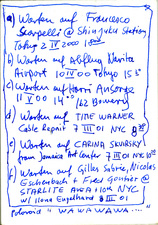 a) Warten auf Francesco
Scarpelli @ Shinjuku Station
Tokyo 2 III 2000
b) Warten auf Abflug Narita
Airport 10 III 00 Tokyo 15
c) Warten auf Horri Ansorge
11 V 00 14 162 Bowery
d) Warten auf TIME WARNER
Cable Repair 7 III 01 NYC
e) Warten auf CARINA SKVARSKY
from Jamaica Art Center 7 III 01 NYC
f) Warten auf Gilles Sabrie, Nicolas
Eschenbach + Fred Gautier @
STARLITE NYC
w/ Ilona Engelhard III 01
"WAWAWAWA...."